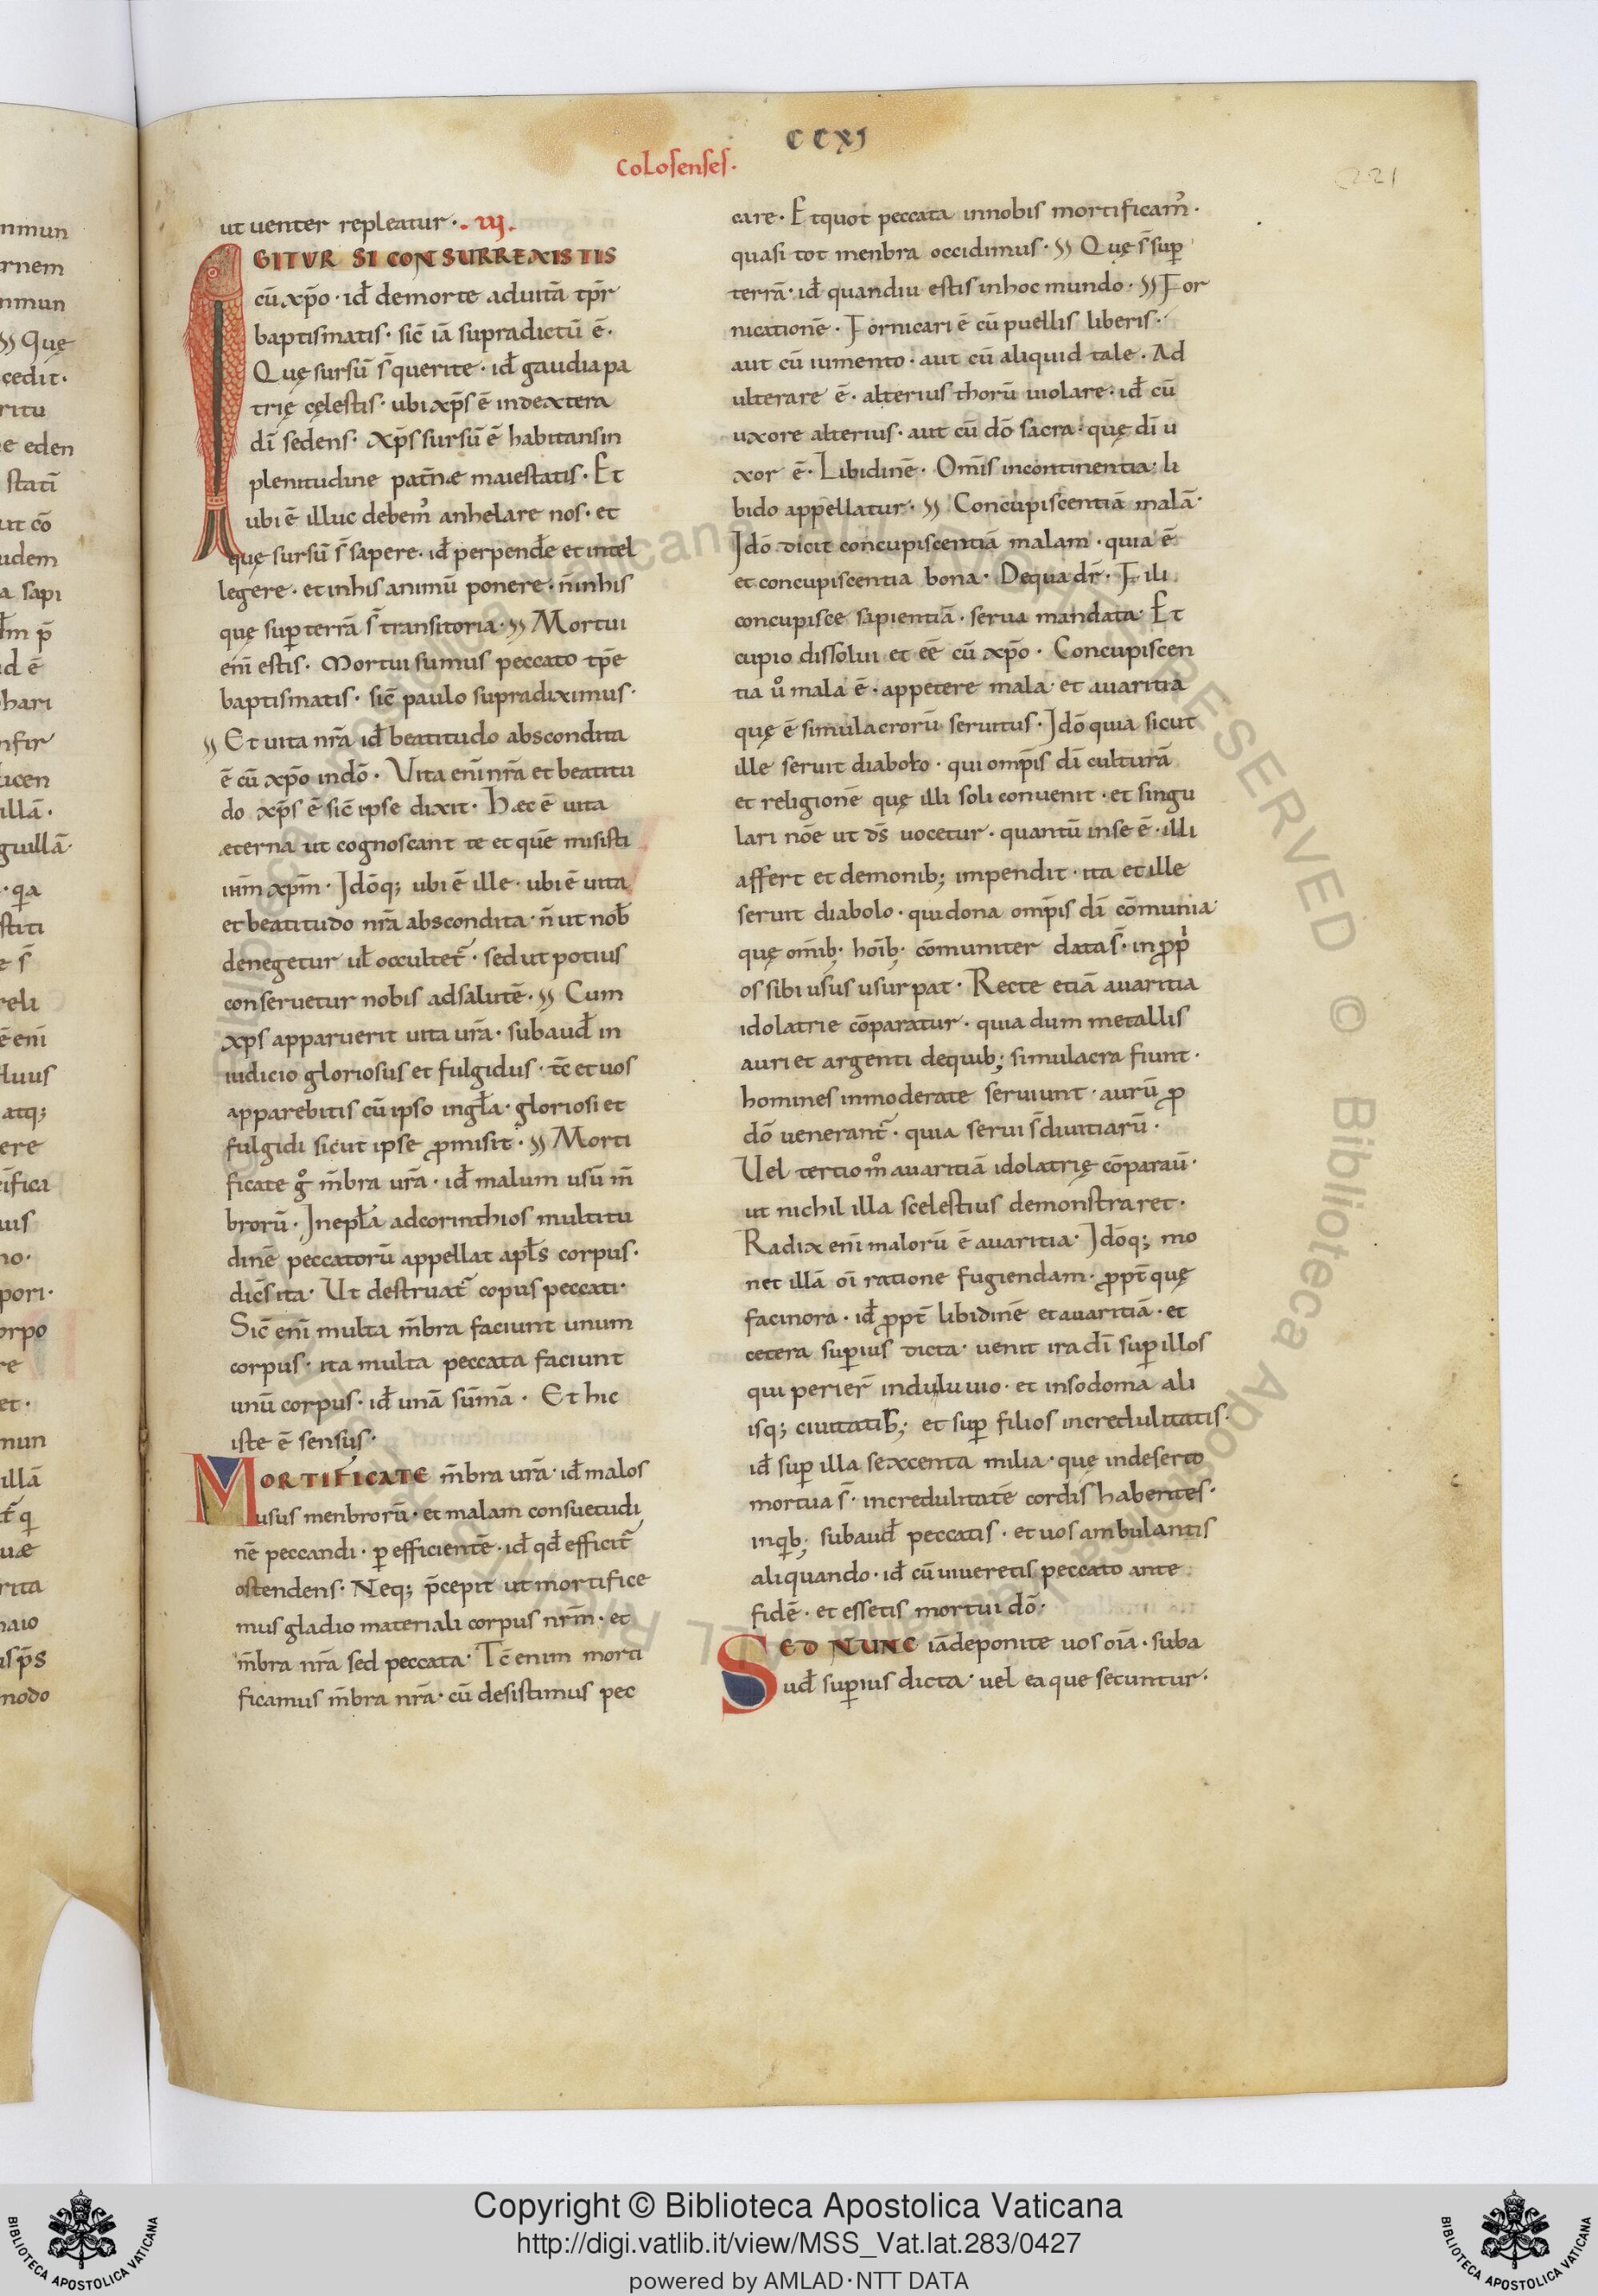 CCXI
Colosenses.
221
ut uenter repleatur · . vij .
IGITVR SI CONSURREXISTIS
cū xp̄o · id̄ demorte aduitā tp̄r
baptismatis · sic̄ iā supradictū ē ·
Quę sursū s̄ querite · id̄ gaudia pa
trię cęlestis · ubi xp̄s ē indextera
dī sedens · xp̄s sursū ē habitansin
plenitudine pat̄næ maiestatis · Et
ubi ē illuc debem᷒ anhelare nos · et
quę sursū s̄ sapere · id̄ perpend̄e et intel
legere · et inhis animū ponere · n̄ inhis
quę suꝑ terrā s̄ transitoria · Mortui
eni̅ estis · Mortui sumus peccato tp̄e
baptismatis · sic̄ paulo supradiximus ·
Et uita nr̄a id̄ beatitudo abscondita
ē cū xp̄o indō · Vita eni̅ nr̄a et beatitu
do xp̄s ē sic̄ ipse dixit · Hæc ē uita
æterna ut cognoscant te et quē misisti
ih̄m xp̄m · Idōq; ubi ē ille · ubi ē uita
et beatitudo nr̄a abscondita · n̄ ut nob̄
denegetur ul̄ occultet᷑ · sed ut potius
conseruetur nobis adsalutē · Cum
xp̄s apparuerit uita ur̄a · subaud̄ in
iudicio gloriosus et fulgidus · tc̄ et uos
apparebitis cū ipso ingl̄a · gloriosi et
fulgidi sicut ipse ꝓmisit · Morti
ficate gͦ m̄bra ur̄a · id̄ malum usū m̄
brorū · Inepl̄a adcorinthios multitu
dinē peccatorū appellat apl̄s corpus ·
dic̄s ita · Ut destruat᷑ copus peccati ·
Sic̄ eni̅ multa m̄bra faciunt unum
corpus · ita multa peccata faciunt
unū corpus · id̄ unā sūmā · Et hic
iste ē sensus ·
MORTIFICATE m̄bra ur̄a · id̄ malos
usus menbrorū · et malam consuetudi
nē peccandi · ꝑ efficientē · id̄ qd̄ efficit᷑
ostendens · Neq; p̄cepit ut mortifice
mus gladio materiali corpus nr̄m · et
m̄bra nr̄a sed peccata · Tc̄ enim morti
ficamus m̄bra nr̄a · cū desistimus pec
care · Et quot peccata innobis mortificam᷒ ·
quasi tot menbra occidimus · Quę s̄ suꝑ
terrā · id̄ quandiu estis inhoc mundo · For
nicationē · Fornicari ē cū puellis liberis ·
aut cū iumento · aut cū aliquid tale · Ad
ulterare ē · alterius thorū uiolare · id̄ cū
uxore alterius · aut cū dō sacra · quę dī u
xor ē · Libidinē · Omīs incontinentia · li
bido appellatur · Concupiscentiā malā ·
Idō dicit concupiscentiā malam · quia ē
et concupiscentia bona · Dequa dr̄ · Fili
concupisce sapientiā · serua mandata · Et
cupio dissolui et eē cū xp̄o · Concupiscen
tia uͦ mala ē · appetere mala · et auaritia
quę ē simulacrorū seruitus · Idō quia sicut
ille seruit diabolo · qui omp̄is dī culturā
et religionē quę illi soli conuenit · et singu
lari nōe ut ds̄ uocetur · quantū inse ē · illi
affert et demonib; impendit · ita et ille
seruit diabolo · qui dona omp̄is dī cōmunia
quę omīb; hoīb; cōmuniter data s̄ · in ꝓpͥ
os sibi usus usurpat · Recte etiā auaritia
idolatrie cōparatur · quia dum metallis
auri et argenti dequib; simulacra fiunt ·
homines inmoderate seruiunt · aurū ꝓ
dō uenerant᷑ · quia serui s̄ diuitiarū ·
Uel tertio mͦ auaritiā idolatrię cōparau̅ ·
ut nichil illa scelestius demonstraret ·
Radix eni̅ malorū ē auaritia · Idōq; mo
net illā oī ratione fugiendam · ꝓpt̄ quę
facinora · id̄ ꝓpt̄ libidinē et auaritiā · et
cetera suꝑius dicta · uenit ira dī suꝑ illos
qui perier̄ indiluuio · et insodoma ali
isq; ciuitatib; et suꝑ filios incredulitatis ·
id̄ suꝑ illa sexcenta milia · quę indeserto
mortua s̄ · incredulitatē cordis habentes ·
inqͥb; subaud̄ peccatis · et uos ambulastis
aliquando · id̄ cū uiueretis peccato ante
fidē · et essetis mortui dō ·
SED NUNC iā deponite uos oīa · suba
ud̄ suꝑius dicta · uel ea que secuntur ·
Copyright © Biblioteca Apostolica Vaticana
http://digi.vatlib.it/view/MSS_Vat.lat.283/0427
powered by AMLAD·NTT DATA
BIBLIOTECA APOSTOLICA VATICANA
BIBLIOTECA APOSTOLICA VATICANA